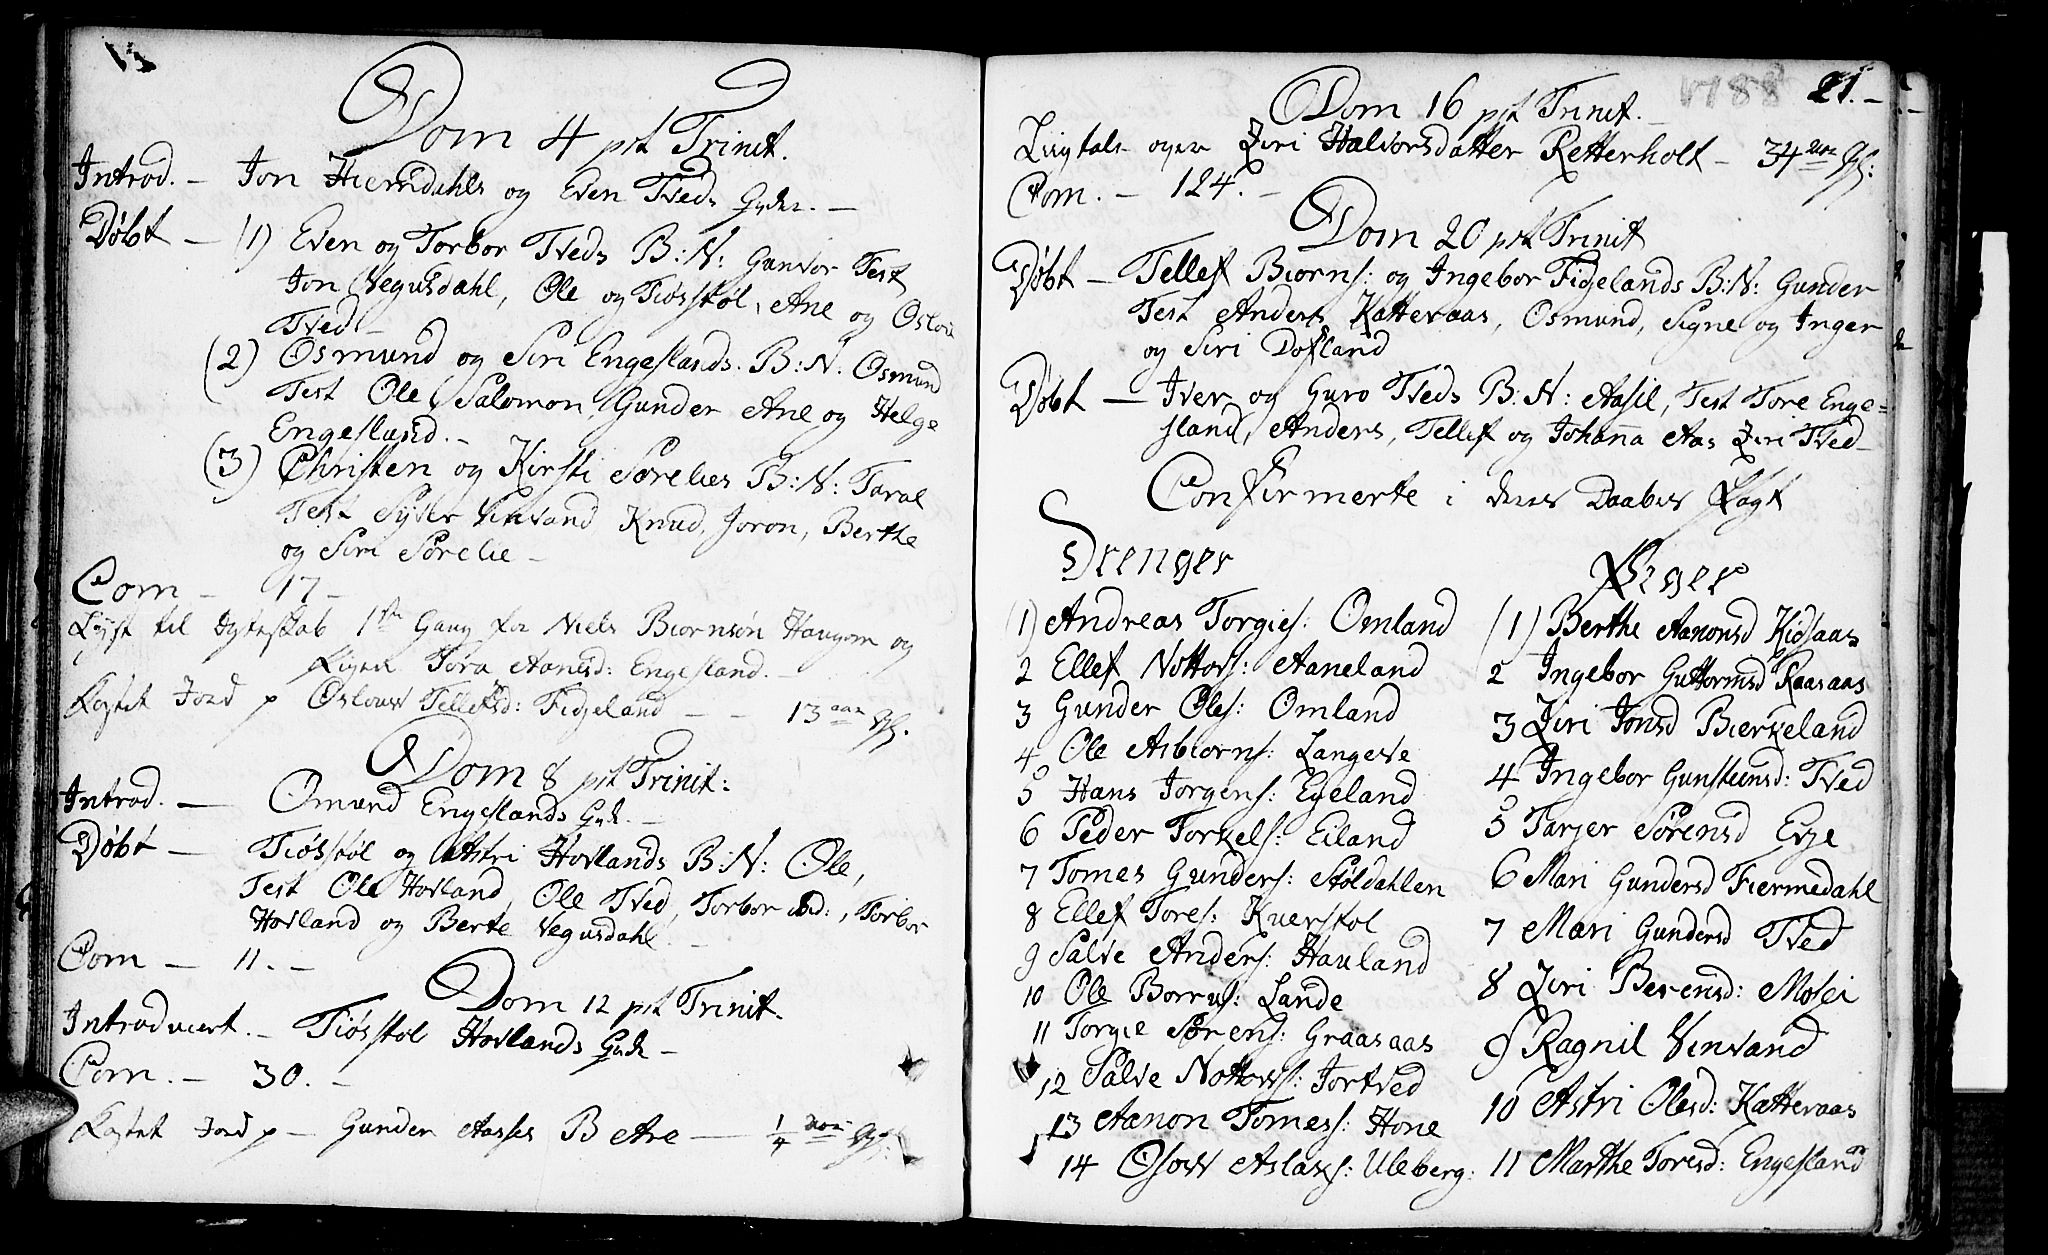 Dom 4 pst Trinit.
Introd. - Jon Hiemdahls og Even Tveds Gvde. -
Døbt - (1) Even og Torbor Tveds B:N: Gunvor Test
Jon Vegusdahl, Ole og Tiøsstøl, Ane og Oslov
Tved -
(2) Osmund og Siri Engeslands. B:N. Osmund
Test Ole, Salomon, Gunder Ane og Helge
Engesland. -
(3) Christen og Kirsti Sørelies B:N: Taral
Test Syver Vinvand Knud, Joron, Berthe
og Siri Sørelie -
Com - 17 -
Lyst til Ægteskab 1ste Gang for Niels Biornsøn Haugom og
Pigen Tora Aanesd: Engesland. -
Kastet Jord p Oslouv Tellefsd: Fidjeland - - 13 aar gl.
Dom 8 pst Trinit:
Introd. - Omund Engeslands Gvde. -
Døbt - Tiøsstøl og Astri Hovlands B:N: Ole,
Test Ole Hovland, Ole Tved, Torbor ibid:, Torbor
Hovland og Berte Vegusdahl. -
Com - 11. -
Dom 12 pst Trinit.
Introducert. - Tiøsstøl Hovlands Gvde -
Com. - 30. -
Kastet Jord p - Gunder Aasses B Are - 1/4 aar gl:
1788 21. -
Dom 16 pst Trinit. -
Liigtale over Ziri Halvorsdatter Retterholt - 34 aar gl:
Com. - 124. -
Dom 20 pst Trinit
Døbt - Tellef Biorns: og Ingebor Fidjelands B:N: Gunder
Test Anders Katteraas, Osmund, Signe og Inger
og Siri Dofland
Døbt - Iver og Guro Tveds B:N: Aasil, Test Tore Enge=
sland, Anders, Tellef og Johana Aas Ziri Tved -
Confirmerte i deres Daabes Pagt
Drenger
(1) Andreas Torgies: Omland
2 Ellef Nottovs: Aaneland
3 Gunder Oles: Omland
4 Ole Asbiorns: Langeve
5 Hans Jorgens: Egeland
6 Peder Torkels: Eiland
7 Tomes Gunders: Støldahlen
8 Ellef Tores: Kverstøl
9 Salve Anders: Hauland
10 Ole Borrus: Lande
11 Torgie Sørens: Graasaas
12 Salve Nottovs: Jortved
13 Aanon Tomess: Hone
14 Osow Aslaks: Uleberg.
Piger
(1) Berthe Aanonsd Kidsaas
2 Ingebor Guttormsd Raasaas
3 Ziri Jonsd Bierkeland
4 Ingebor Gunsteensd: Tved
5 Tarjer Sørensd Evje
6 Mari Gundersd Fiermedahl
7 Mari Gundersd Tved
8 Ziri Berensd: Mosei
9 Ragnil Vinvand
10 Astri Olesd: Katteraas
11 Marthe Toresd: Engesland